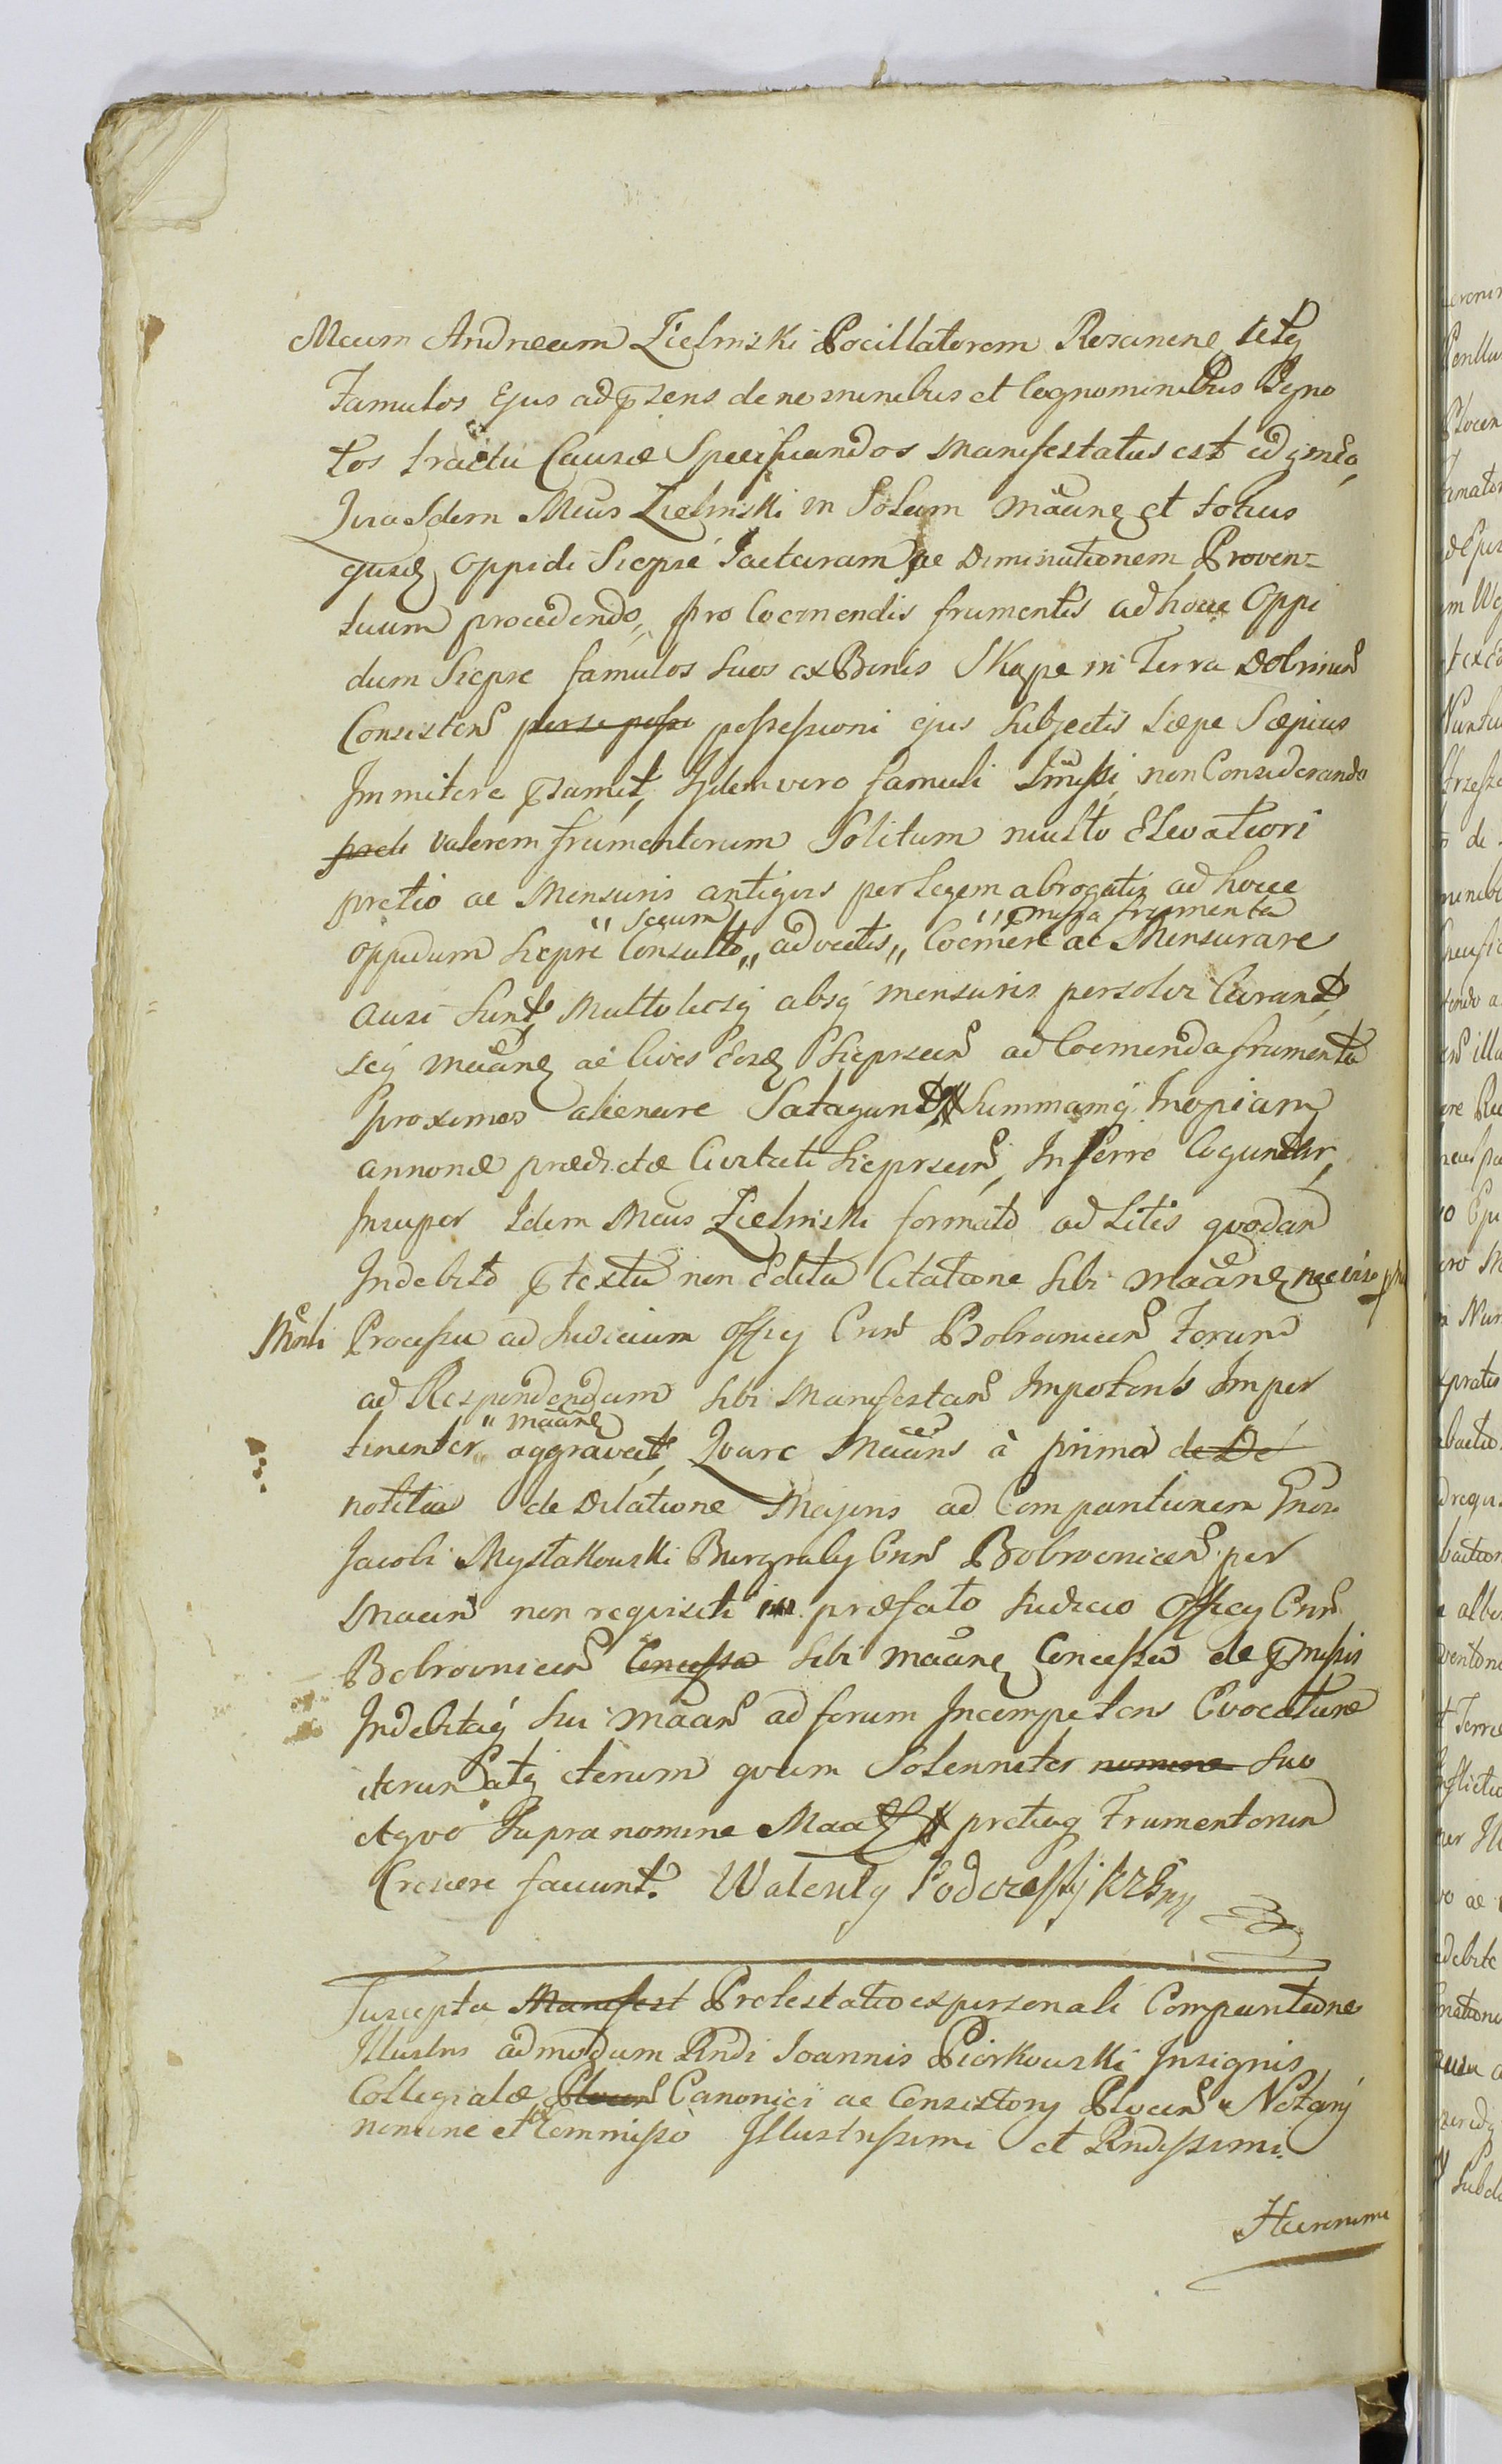 Mcum Andream Zielinski Pocillatorem Rozanene, tetq
Famulos Ejus ad pzens de nominibus et Cognominibus Igno
tos tractu Causæ Specificandos Manifestatus est id
Quia Idem Mcus Zielinski in Solum Maane et totius
Oppidi Sieprc Jacturam ac Diminutionem Proven=
tuum procedendo, pro Coemendis frumentis ad hocce Oppi
dum Sieprc famulos suos ex Bonis Skąpe in Terra Dobrinen
Consisten possessioni ejus Subjectis Sæpe Sæpius
Immitere Idem vero famuli non Considerando
valorem frumentorum Solitum multo Elevatiori
pretio ac Mensuris antiquis per Legem abrogatis ad hocce
" secum " pmissa frumenta
Oppidum Sieprc Consulto „ advectis „ Coemere ac Mensurare
Ausi Sunt, Multo absq mensuris persolvi Curant,
seq Maane ac Cives Sieprcen ad Coemenda frumenta
proximos alienare Satagunt Summamq Inopiam
annonæ prædictæ Civitati Sieprcen, Inferre Coguntur,
Insuper Idem Mcus Zielinski formato ad Litis quodam
Indebito ptextu non Edita Citatione Sibi Maane
Processu ad Judicium Officy Cnn Bobrovnicen Forum
ad Respondendum Sibi Manifestan Impotens Imper
" maane
tinenter „ aggravat, Quare Maans à prima de De
notitia de Dilatione Majoris ad Comparitionem
Jacobi Mystakowski Burgraby Cnn Bobrovnicen per
Maan non requisiti in præfato Judicio Officy Cnn
Bobrovnicen Concessa Sibi Maane Concessa de pmissis
Indebitaq Sui Maan ad forum Incompetens Evocatione
iterum atq iterum qvam Solenniter nomine Suo
et qvo Supra nomine pretiaq Frumentorum
Crescere faciunt. Walenty
Suscepta Manifest Protestatio ex personali Comparitione
Illustris admodum Rndi Joannis Piórkowski Insignis
Collegiatæ Plocen Canonici ac Consistory Plocen Notarÿ
nomine et Commisso Illustrissimi et Rndissimi
Hieronimi